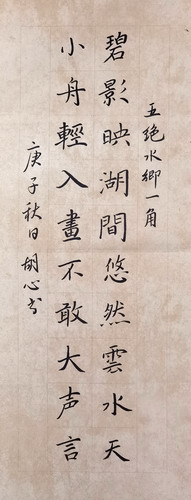 五绝水鄉一角
碧影映湖間悠然雲水天
小舟輕入畫不敢大声言
庚子秋日胡心书